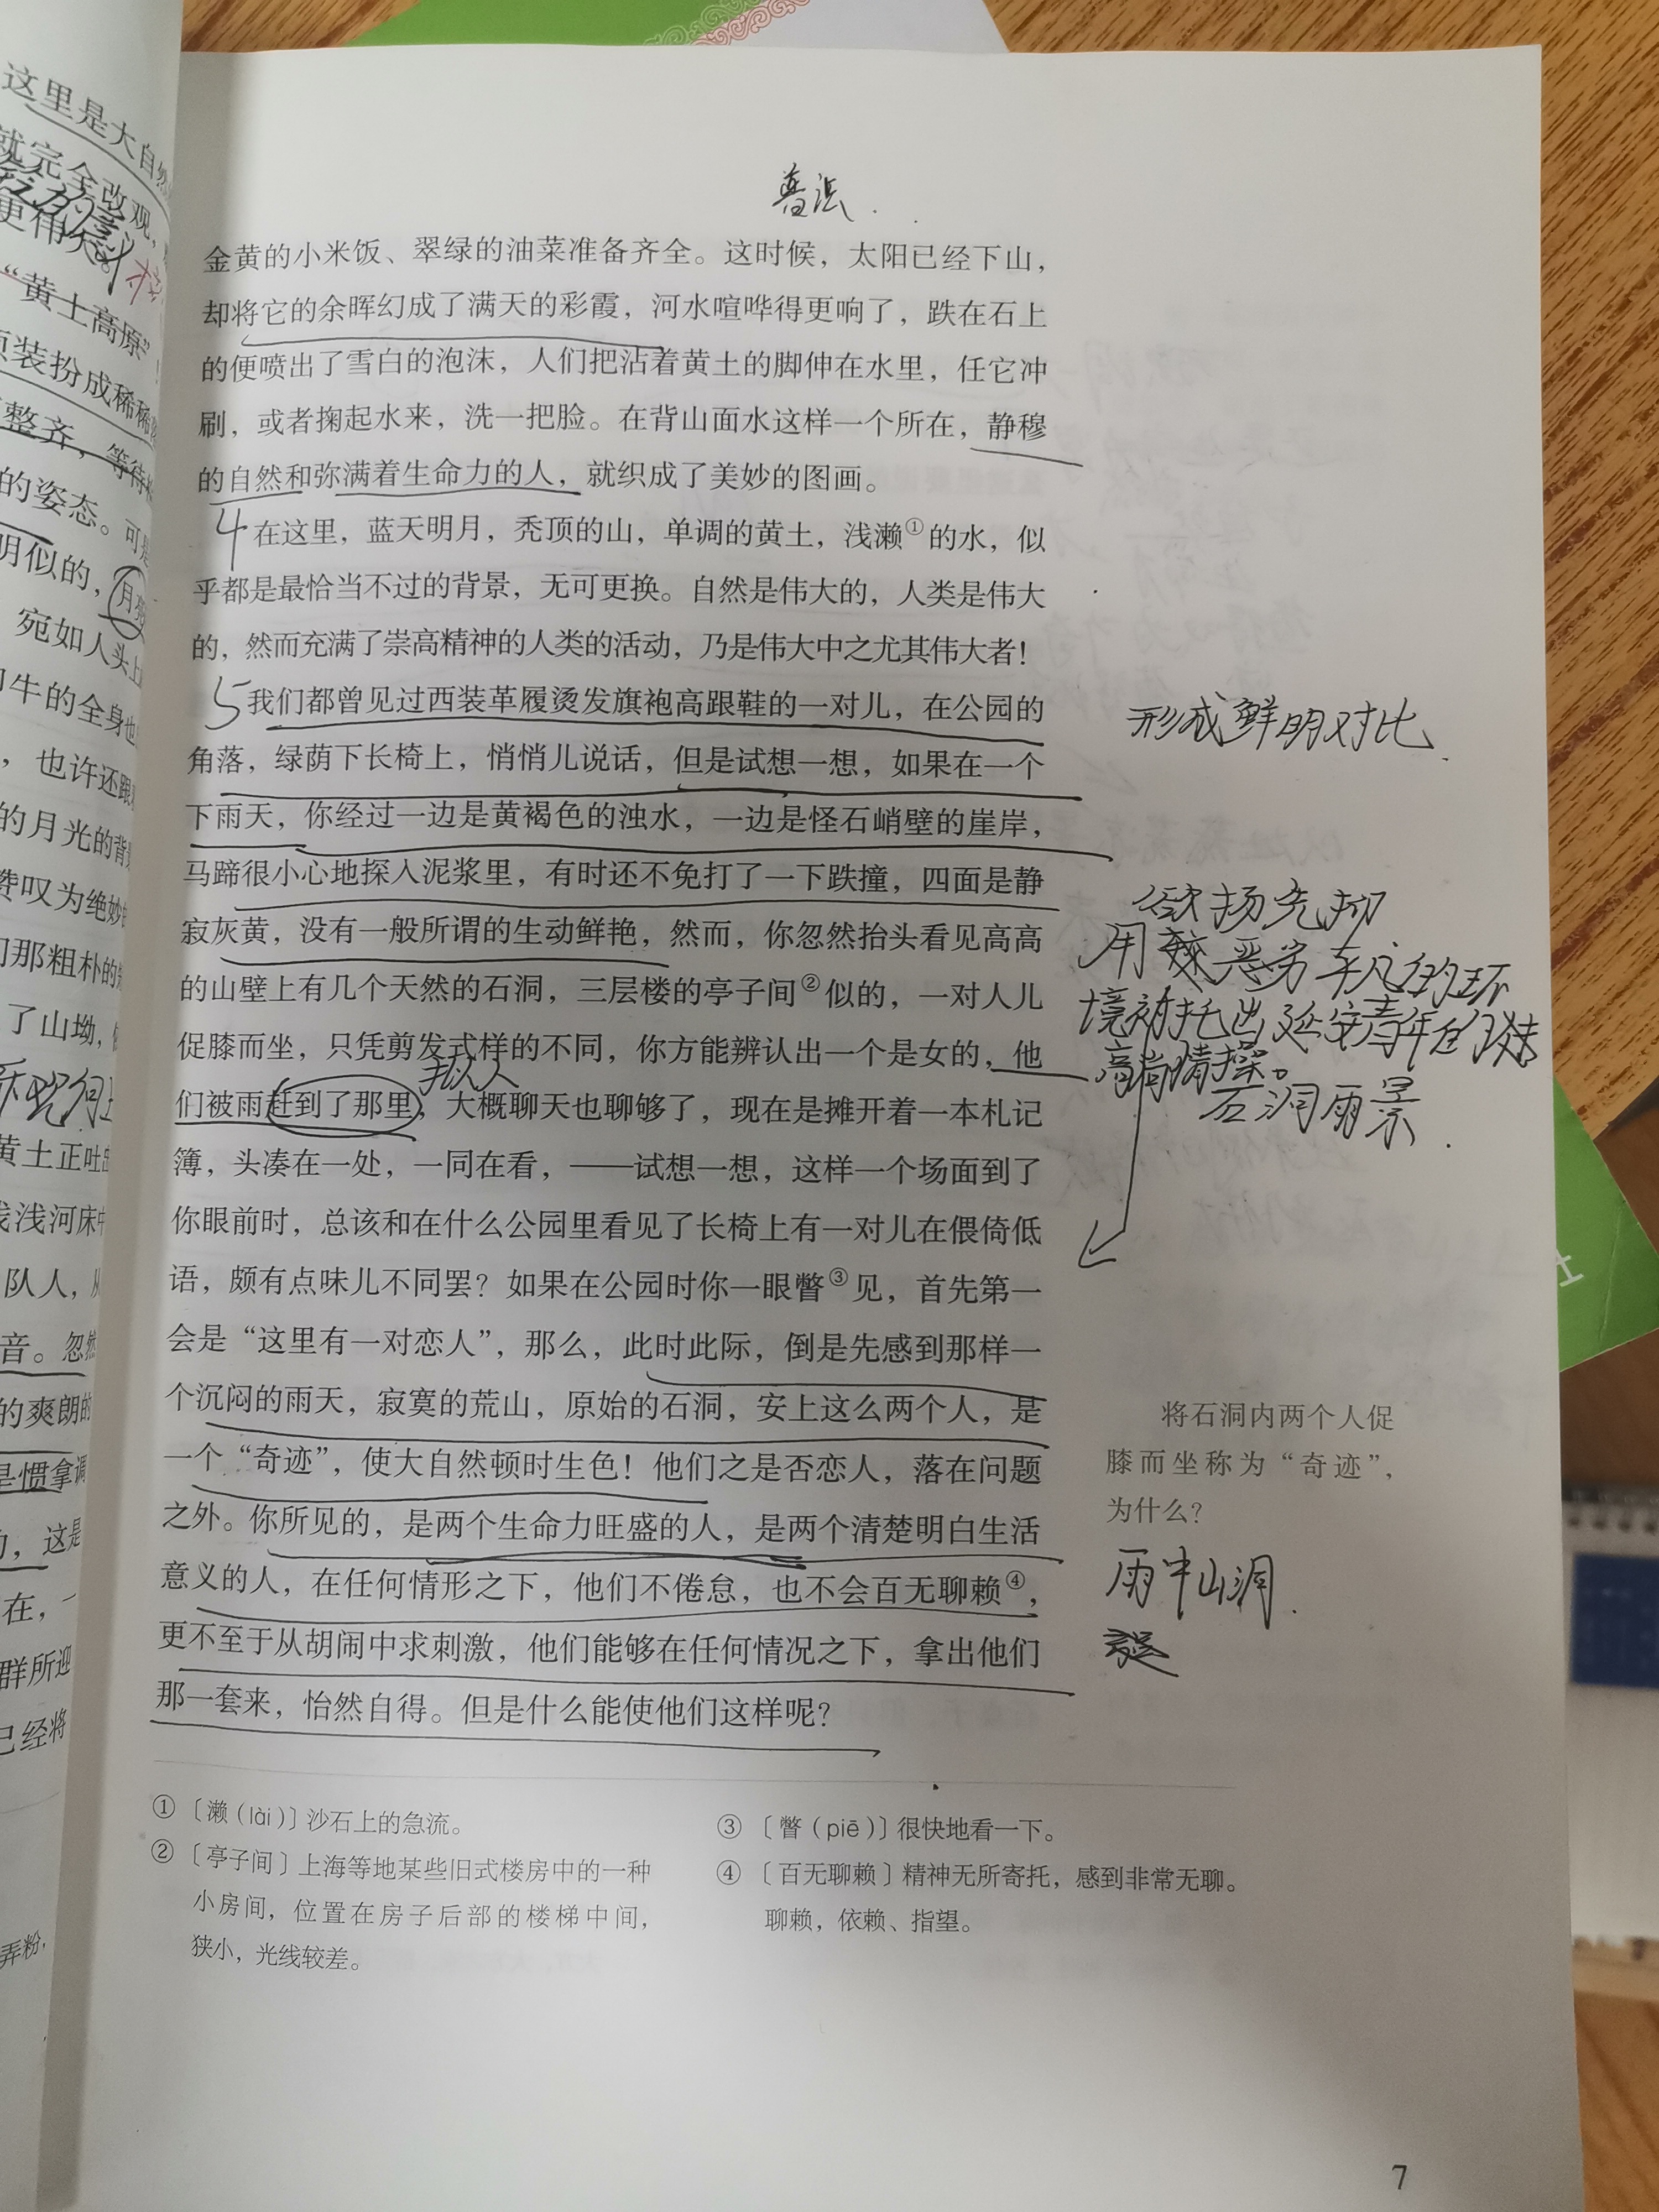 这里是大自然
就完全改观，
更伟大
“黄土高原”
装扮成稀稀
整齐，等待
的姿态。可是
明似的，月亮
宛如人头上
和牛的全身也
，也许还跟
的月光的背
赞叹为绝妙
们那粗朴的
了山坳，
黄土正吐出
浅浅河床中
队人，从
音。忽然
的爽朗的
是惯拿调
，这是
在，一
群所迎
已经将
弄粉，
普法
金黄的小米饭、翠绿的油菜准备齐全。这时候，太阳已经下山，
却将它的余晖幻成了满天的彩霞，河水喧哗得更响了，跌在石上
的便喷出了雪白的泡沫，人们把沾着黄土的脚伸在水里，任它冲
刷，或者掬起水来，洗一把脸。在背山面水这样一个所在，静穆
的自然和弥满着生命力的人，就织成了美妙的图画。
4 在这里，蓝天明月，秃顶的山，单调的黄土，浅濑①的水，似
乎都是最恰当不过的背景，无可更换。自然是伟大的，人类是伟大
的，然而充满了崇高精神的人类的活动，乃是伟大中之尤其伟大者！
5 我们都曾见过西装革履烫发旗袍高跟鞋的一对儿，在公园的
角落，绿荫下长椅上，悄悄儿说话，但是试想一想，如果在一个
下雨天，你经过一边是黄褐色的浊水，一边是怪石峭壁的崖岸，
马蹄很小心地探入泥浆里，有时还不免打了一下跌撞，四面是静
寂灰黄，没有一般所谓的生动鲜艳，然而，你忽然抬头看见高高
的山壁上有几个天然的石洞，三层楼的亭子间②似的，一对人儿
促膝而坐，只凭剪发式样的不同，你方能辨认出一个是女的，他
们被雨赶到了那里，大概聊天也聊够了，现在是摊开着一本札记
簿，头凑在一处，一同在看，——试想一想，这样一个场面到了
你眼前时，总该和在什么公园里看见了长椅上有一对儿在偎倚低
语，颇有点味儿不同罢？如果在公园时你一眼瞥③见，首先第一
会是“这里有一对恋人”，那么，此时此际，倒是先感到那样一
个沉闷的雨天，寂寞的荒山，原始的石洞，安上这么两个人，是
一个“奇迹”，使大自然顿时生色！他们之是否恋人，落在问题
之外。你所见的，是两个生命力旺盛的人，是两个清楚明白生活
意义的人，在任何情形之下，他们不倦怠，也不会百无聊赖④，
更不至于从胡闹中求刺激，他们能够在任何情况之下，拿出他们
那一套来，怡然自得。但是什么能使他们这样呢？
拟人
形成鲜明对比
欲扬先抑
用 恶劣平凡的环
境衬托出延安青年们
高尚情操。
石洞雨景
将石洞内两个人促
膝而坐称为“奇迹”，
为什么？
雨中山洞
①〔濑（lài）〕沙石上的急流。
②〔亭子间〕上海等地某些旧式楼房中的一种
小房间，位置在房子后部的楼梯中间，
狭小，光线较差。
③〔瞥（piē）〕很快地看一下。
④〔百无聊赖〕精神无所寄托，感到非常无聊。
聊赖，依赖、指望。
7